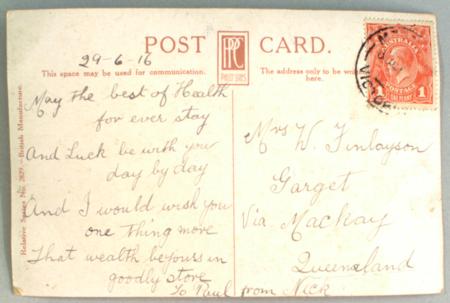 POST CARD.
PPC
29-6-16
This space may be used for communication.
The address only to be
AUSTRALIA
POSTAGE
ONE PENNY
1
VICTORIA
May the best of Health
for ever stay
And Luck be with you
day by day
And I would wish you
one thing more
That wealth be yours in
goodly store
To Paul from Nick
Mrs W. Finlayson
Garget
Via Mackay
Queensland
Relative Series No. 2829.—British Manufacture.